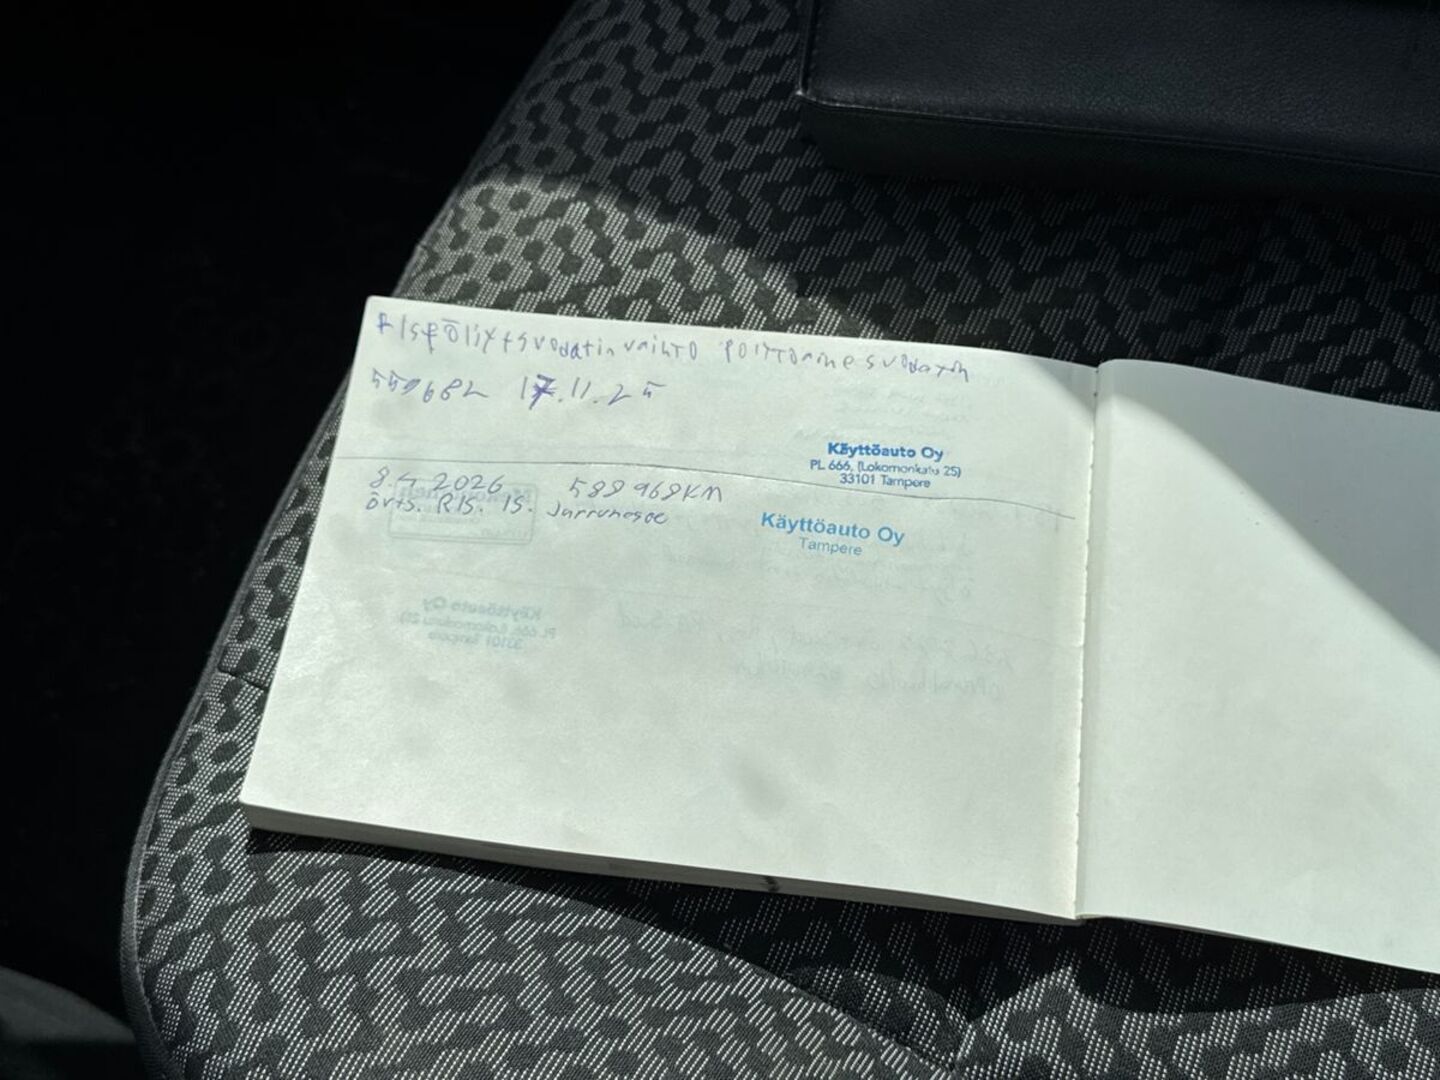 öljyt+suodatin vaihto polttoaine suodatin
559682 17.11.25
Käyttöauto Oy
PL 666, (Lokomonkatu 25)
33101 Tampere
8.4 2026 588 968KM
öVTS. RIS. IS. Jarrunoste
Käyttöauto Oy
Tampere